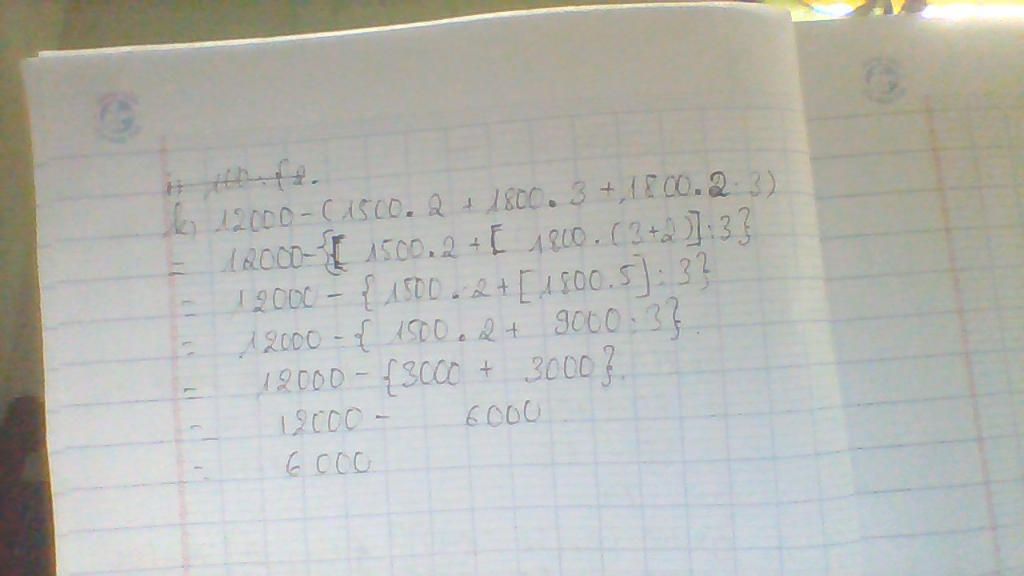 12000 - (1500.2 + 1800.3 + 1800.2:3)
= 12000-{[ 1500.2 + [ 1800.(3+2)]:3}
= 12000 - {1500.2 + [1800.5] : 3}
= 12000 - { 1500.2 + 9000:3}.
= 12000 - {3000 + 3000}.
= 12000 - 6000
= 6000